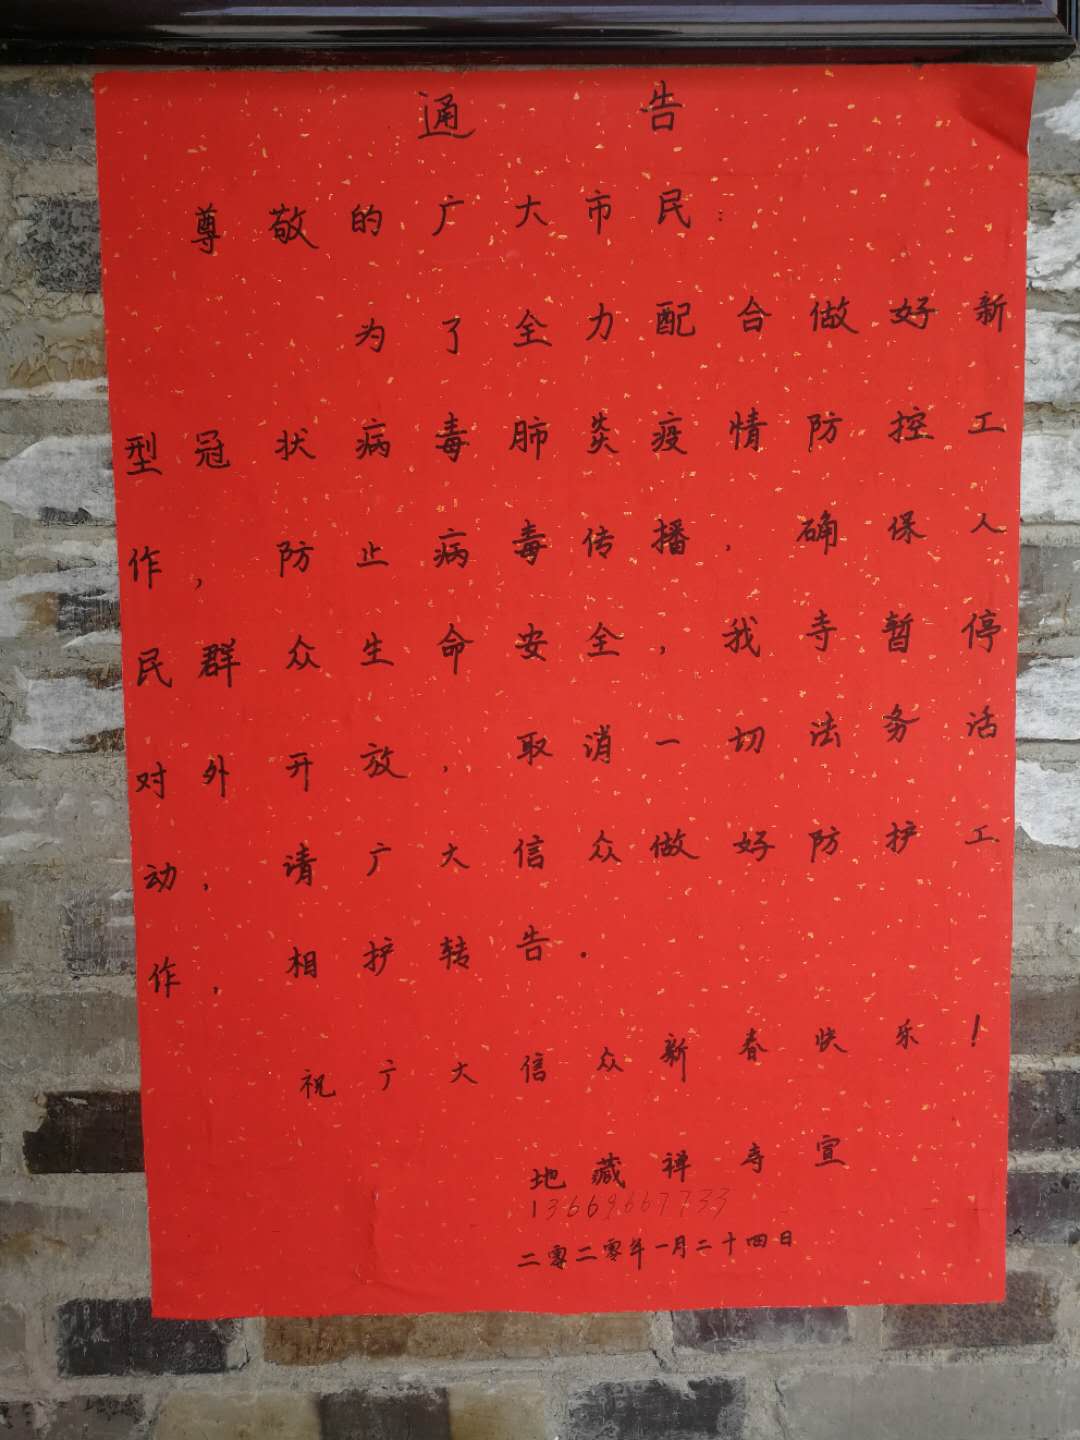 通告
尊敬的广大市民：
为了全力配合做好新
型冠状病毒肺炎疫情防控工
作，防止病毒传播，确保人
民群众生命安全，我寺暂停
对外开放，取消一切法务活
动，请广大信众做好防护工
作，相护转告.
祝广大信众新春快乐！
地藏禅寺宣
13669667733
二零二零年一月二十四日